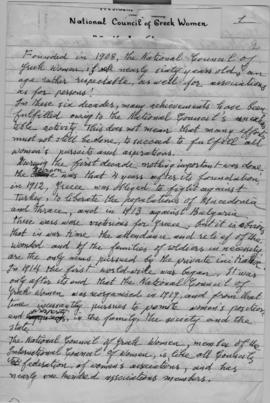 National Council of Greek Women
1
2
Founded in 1908, the National Council of
Greek Women, is nearly sixty years old; an
age rather respectable, as well for associations
as for persons!
In these six decades, many achievements have been
fulfilled owing to the National Council's
activity. This does not mean that many efforts
must not still be done, to succeed to fulfill all
women's pursuits and aspirations.
During the first decade, nothing important was done.
The reason was that 4 years after its foundation
in 1912, Greece was obliged to fight against
Turkey, to liberate the populations of Macedonia
and Thrace, and in 1913 against Bulgaria
These wars were victorious for Greece, but it is obvious
that in war time the attendance and relief of the
wounded and of the families of soldiers in
are the only aims pursued by the private initiative.
In 1914 the first world wide war began. It was
only after its end that the National Council of
Greek Women, was reorganised in 1919, and from that
time constantly pursues to promote women's position
and in the family, the society and the
state.
The National Council of Greek Women, member of the
International Council of Women, is like all Councils
a federation, of women's associations, and has
nearly one hundred associations members.